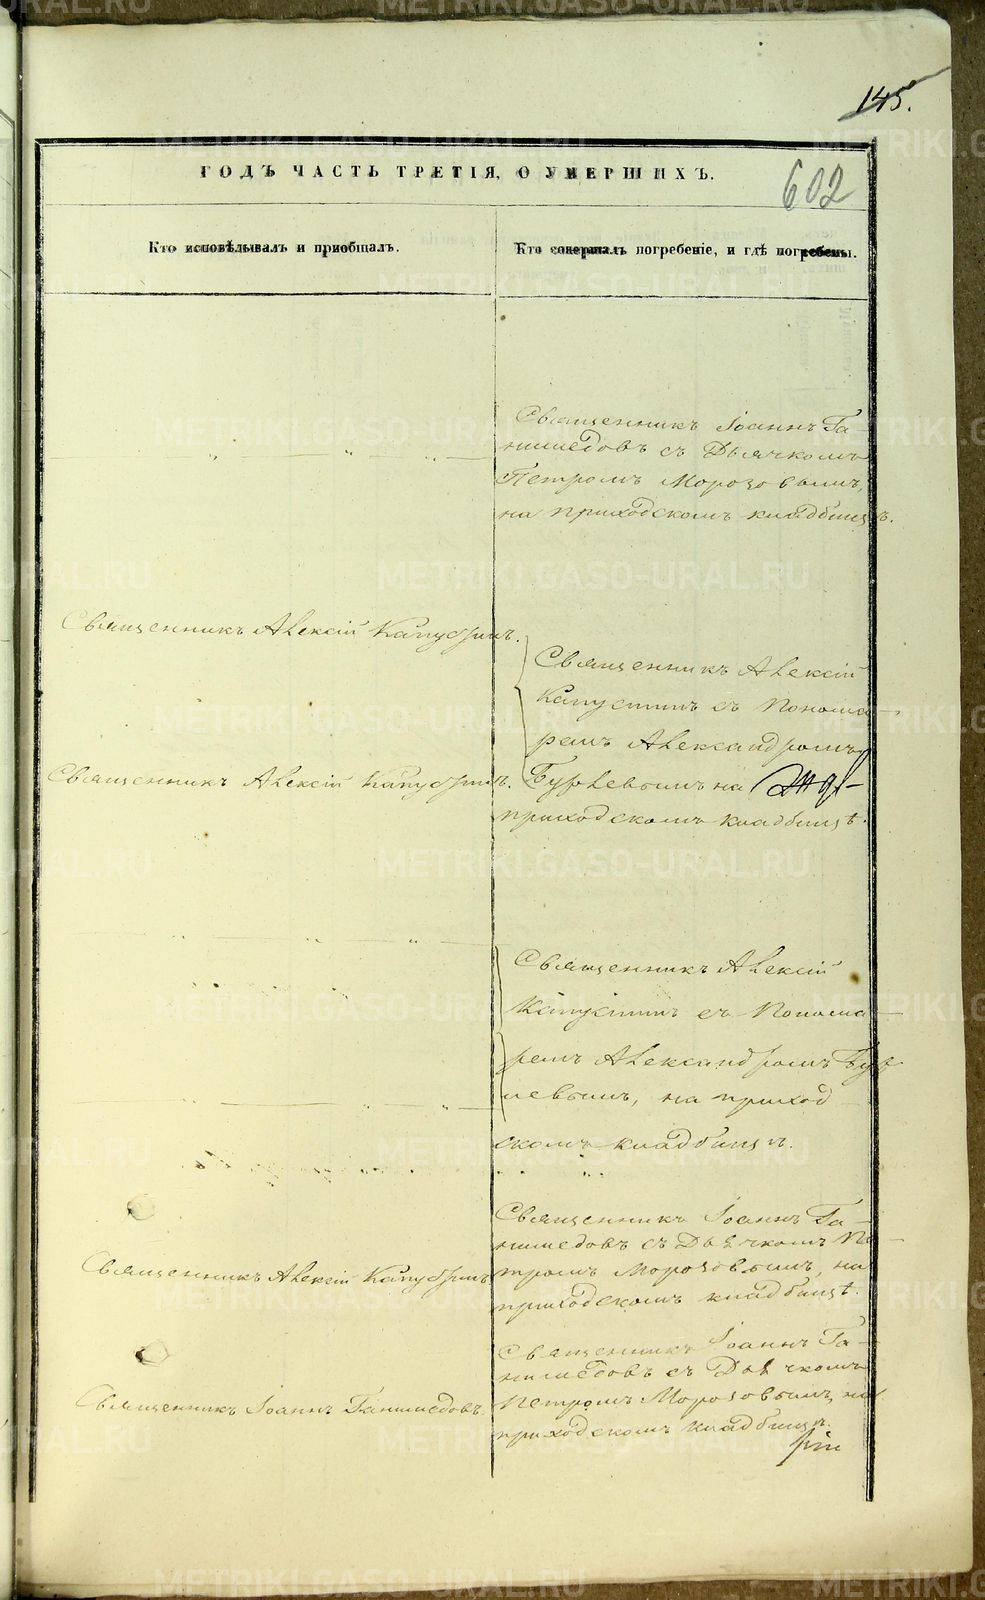 145.
602
ГОДЪ ЧАСТЬ ТРЕТІЯ, О УМЕРШИХЪ.
Кто исповѣдывалъ и приобщалъ.
Кто совершалъ погребеніе, и гдѣ погребены.
Священникъ Іоаннъ Га-
нимедовъ съ Дьячкомъ
Петромъ Морозовымъ,
на приходскомъ кладбищѣ.
Священникъ Алексій Капустинъ.
Священникъ Алексій
Капустинъ съ Понома-
ремъ Александромъ
Священникъ Алексій Капустинъ.
Бурлевымъ на
приходскомъ кладбищѣ.
Священникъ Алексій
Капустинъ съ Понома-
ремъ Александромъ Бур
левымъ, на приход
скомъ кладбищѣ.
Священникъ Іоаннъ Га-
нимедовъ съ Дьячкомъ Пе-
Священникъ Алексій Капустинъ
тромъ Морозовымъ, на
приходскомъ кладбищѣ.
Священникъ Іоаннъ Га-
нимедовъ съ Дьячкомъ
Священникъ Іоаннъ Ганимедовъ.
Петромъ Морозовымъ, на
приходскомъ кладбищѣ.
METRIKI.GASO-URAL.RU